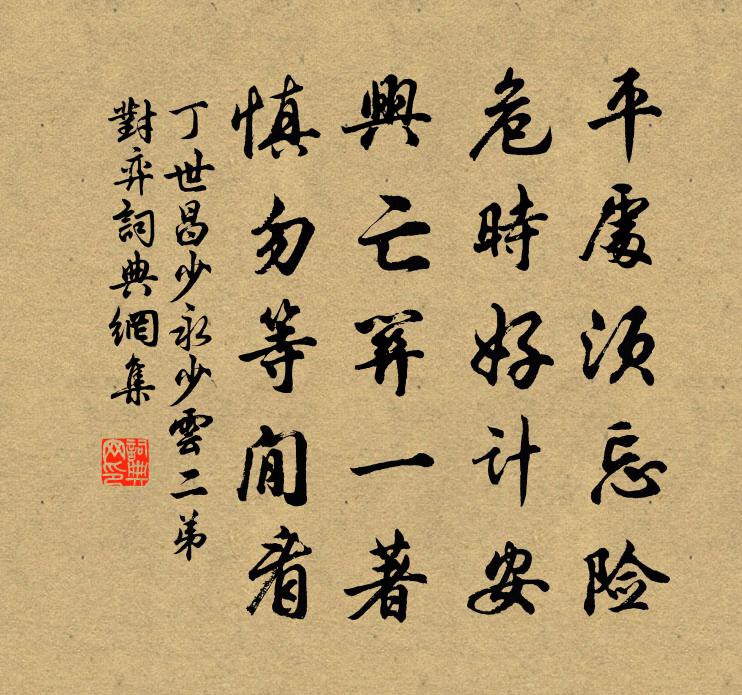 平處須忘险
危時好計安
興亡關一著
慎勿等閒看
丁世昌少永少雲二弟
對弈詞典網集
詞典网印